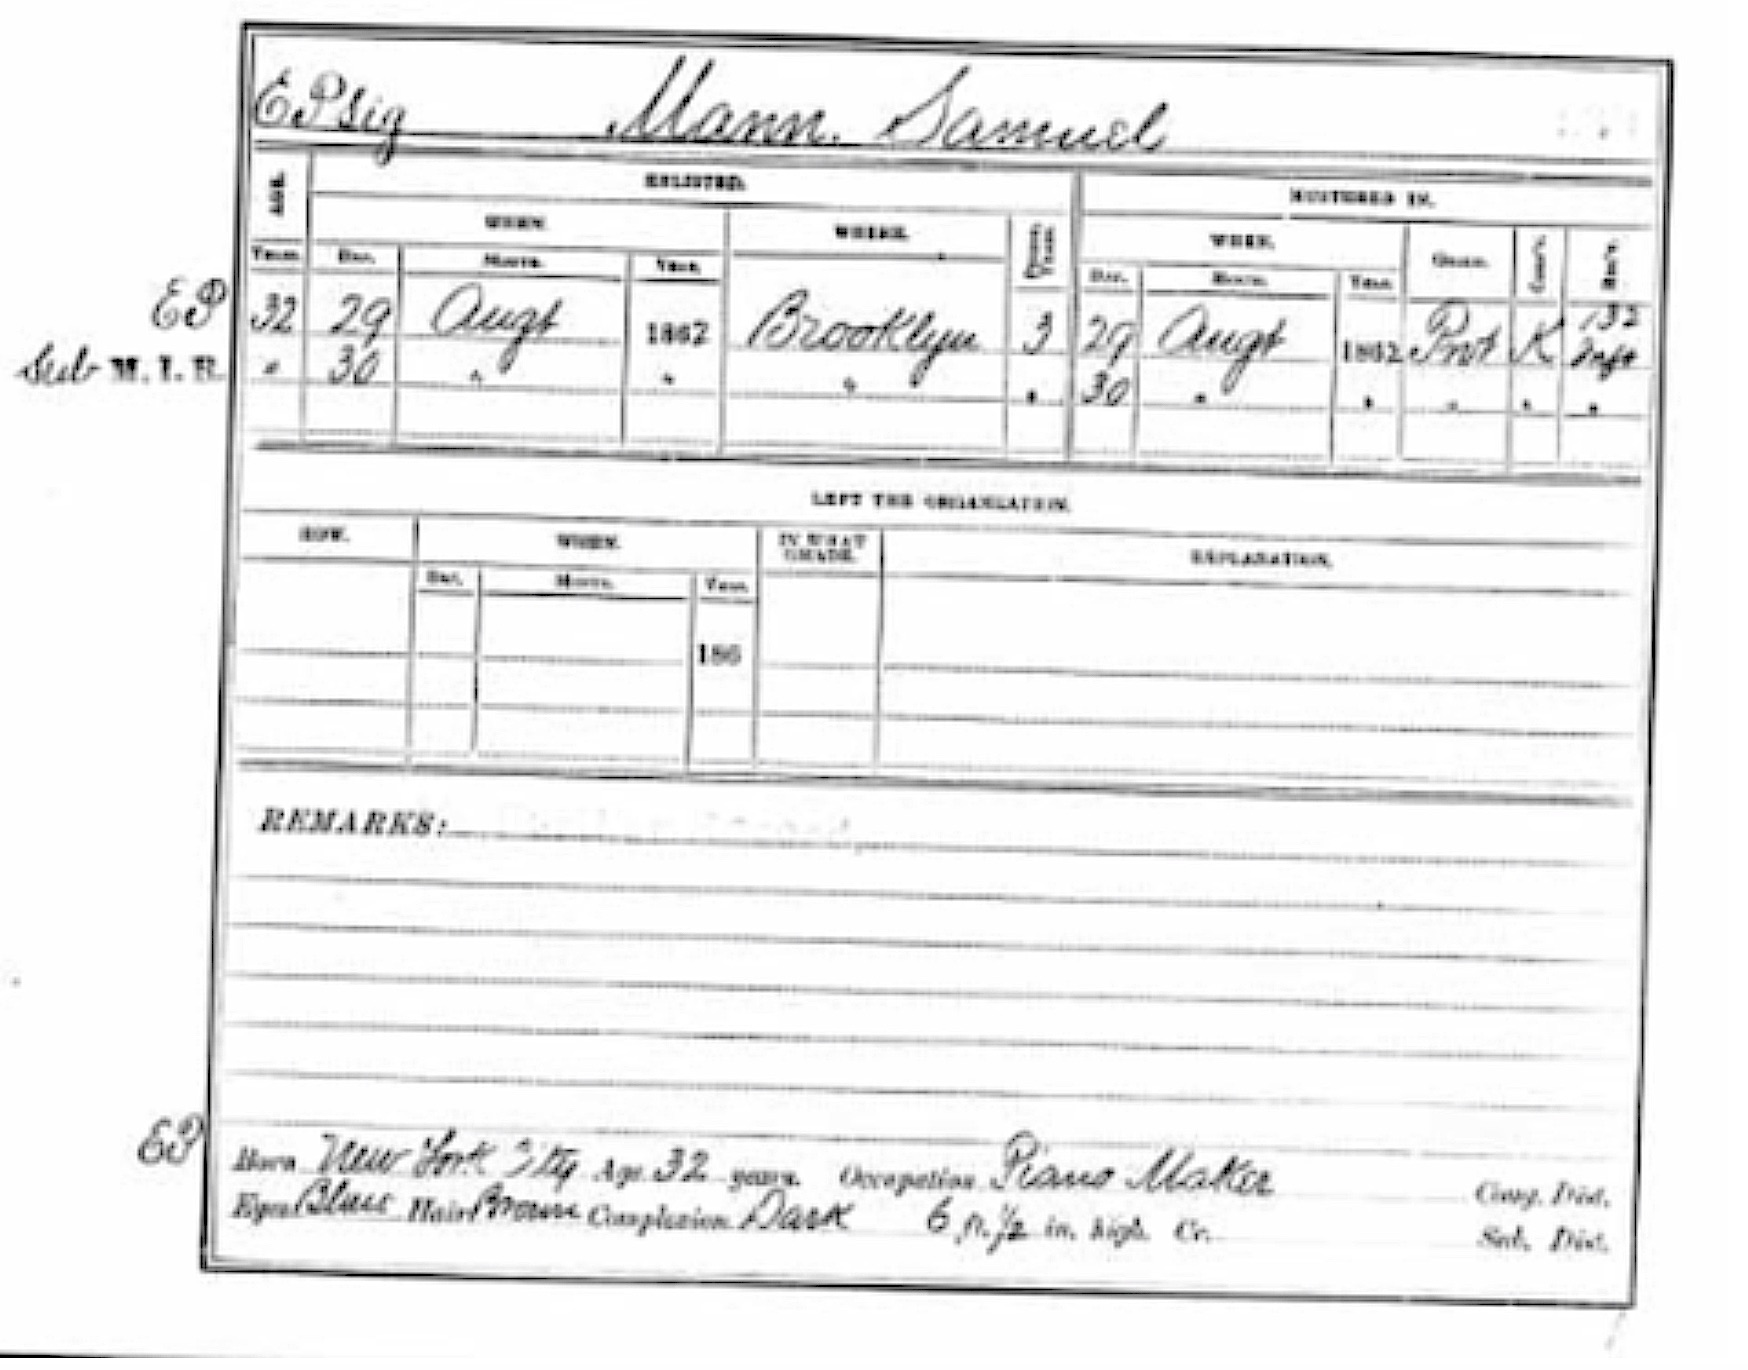 EP sig Mann. Samuel
AGE. ENLISTED. MUSTERED IN.
WHEN. WHERE. WHEN. GRADE.
Years. Day. Month. Year. Day. Month. Year.
EP 32 29 Augt 1862 Brooklyn 3 29 Augt 1862 Pvt K 132 Inft
Sub M. I. R. " 30 " " " " 30 " " " " "
LEFT THE ORGANIZATION.
HOW. WHEN. IN WHAT GRADE. EXPLANATION.
Day. Month. Year.
186
REMARKS:
EP Born New York City Age 32 years. Occupation Piano Maker Cong. Dist.
Eyes Blue Hair Brown Complexion Dark 6 ft. ½ in. high. Cr. Sub. Dist.